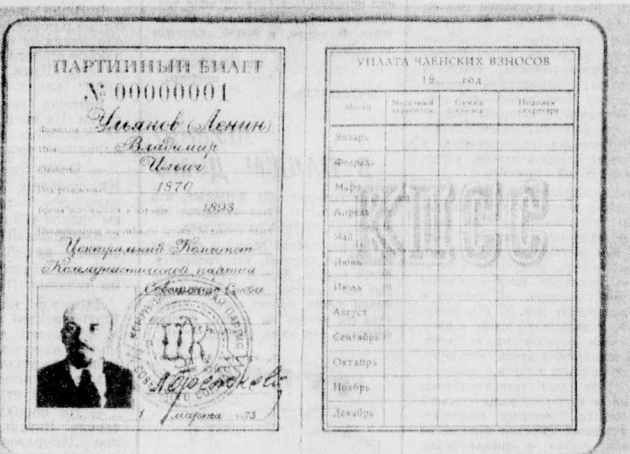 ПАРТИЙНЫЙ БИЛЕТ
№ 00000001
Фамилия Ульянов (Ленин)
Имя Владимир
Отчество Ильич
Год рождения 1870
Время вступления в партию 1893
Наименование партийного органа, выдавшего билет
Центральный Комитет
Коммунистической партии
Советского Союза
ЦК
1 марта 1973
УПЛАТА ЧЛЕНСКИХ ВЗНОСОВ
19 год
Месяц Месячный заработок Сумма взноса Подпись секретаря
Январь
Февраль
Март
Апрель
Май
Июнь
Июль
Август
Сентябрь
Октябрь
Ноябрь
Декабрь
КПСС